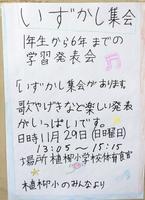 いずかし集会
1年生から6年までの
学習発表会
「いずかし集会」があります
歌やげきなど楽しい発表
がいっぱいです。
日時11月29日(日曜日)
13:05〜15:15
場所 植柳小学校体育館
植柳小のみんなより